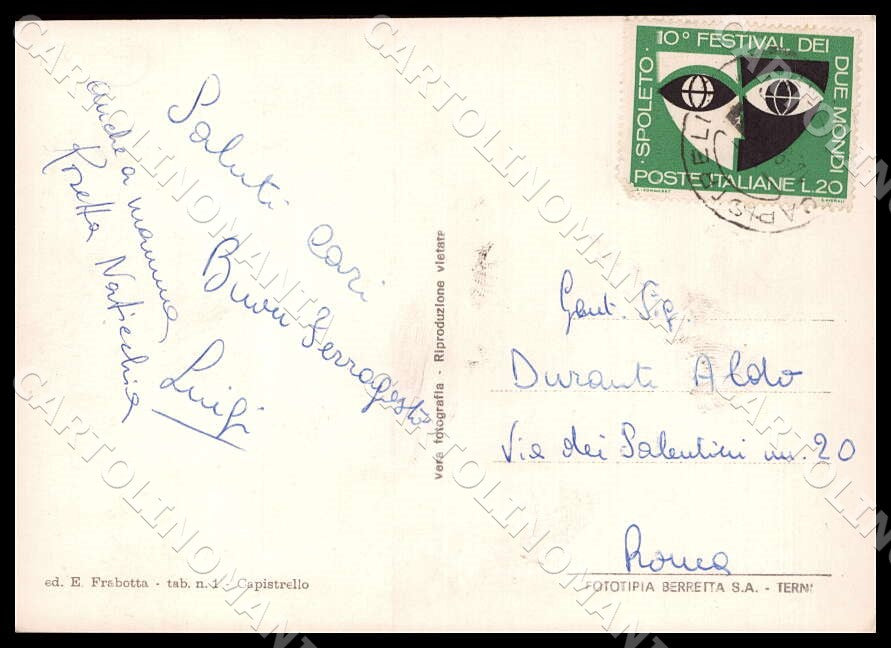 Saluti Cari
Buon Ferragosto
Luigi
anche a mamma
Rosetta
10° FESTIVAL DEI DUE MONDI
SPOLETO
POSTE ITALIANE L.20
Gent. Sig.
Durante Aldo
Via dei Salentini nr. 20
Roma
vera fotografia - Riproduzione vietata
ed. E. Frabotta - tab. n. 1 - Capistrello
FOTOTIPIA BERRETTA S.A. - TERNI
CARTOLINOMANIA